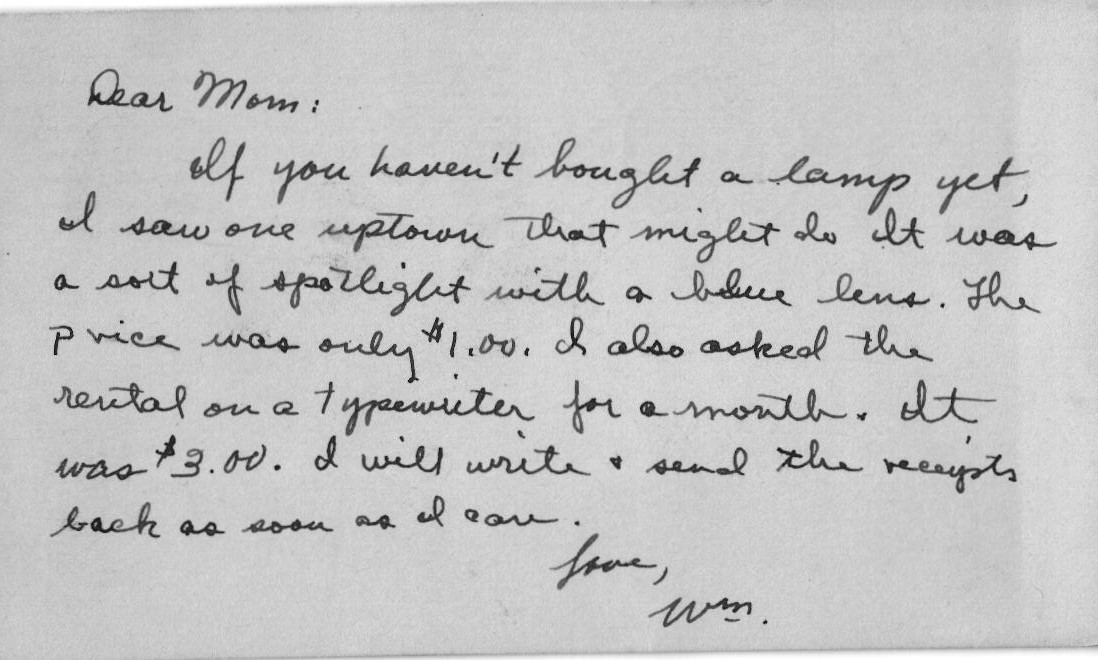 Dear Mom:
If you haven't bought a lamp yet,
I saw one uptown that might do It was
a sort of spotlight with a blue lens. The
price was only $1.00. I also asked the
rental on a typewriter for a month. It
was $3.00. I will write & send the receipts
back as soon as I can.
Love,
Wm.